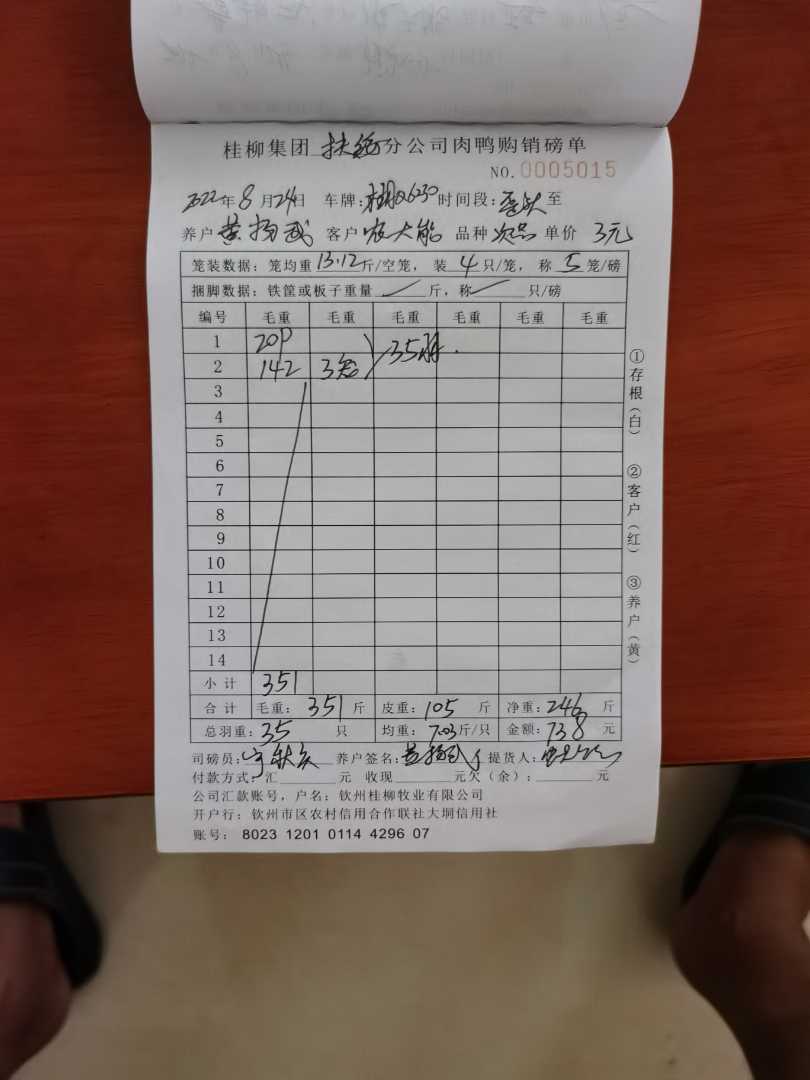 桂柳集团 扶绥 分公司肉鸭购销磅单
NO.0005015
2022年8月24日 车牌: 时间段: 至
养户 黄扬武 客户 农大能 品种 次品 单价 3元
笼装数据: 笼均重 13.12 斤/空笼, 装 4 只/笼, 称 5 笼/磅
捆脚数据: 铁筐或板子重量 斤, 称 只/磅
编号 毛重 毛重 毛重 毛重 毛重 毛重
1 209 35羽.
2 142 3笼
3
4
5
6
7
8
9
10
11
12
13
14
小计 351
合计 毛重: 351 斤 皮重: 105 斤 净重: 246 斤
总羽重: 35 只 均重: 7.03 斤/只 金额: 738 元
司磅员: 养户签名: 黄扬武 提货人:
付款方式: 汇 元 收现 元欠(余): 元
公司汇款账号, 户名: 钦州桂柳牧业有限公司
开户行: 钦州市区农村信用合作联社大垌信用社
账号: 8023 1201 0114 4296 07
①存根(白)
②客户(红)
③养户(黄)